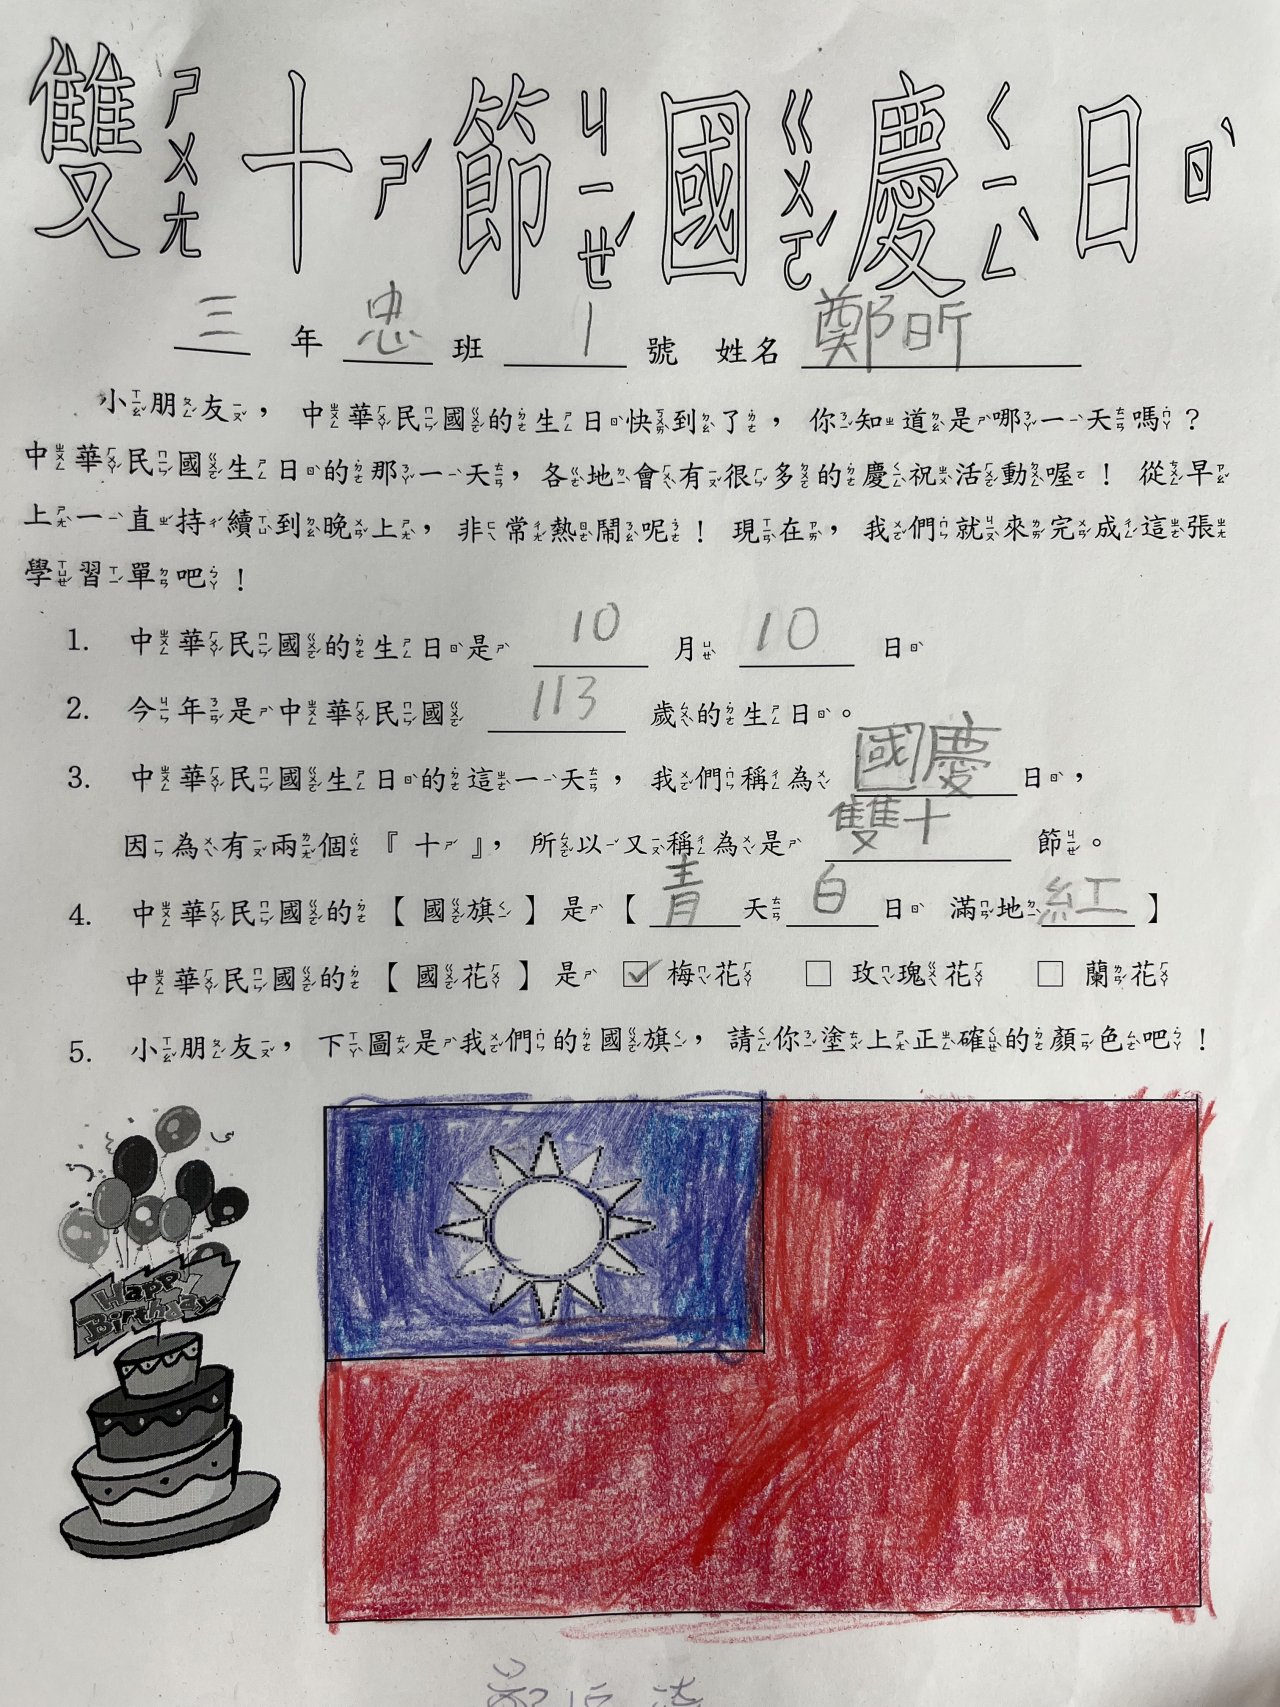 雙ㄕㄨㄤ十ㄕˊ節ㄐㄧㄝˊ國ㄍㄨㄛˊ慶ㄑㄧㄥˋ日ㄖˋ
三 年 忠 班 1 號 姓名 鄭昕
小朋友，中華民國的生日快到了，你知道是哪一天嗎？
中華民國生日的那一天，各地會有很多的慶祝活動喔！從早
上一直持續到晚上，非常熱鬧呢！現在，我們就來完成這張
學習單吧！
1. 中華民國的生日是 10 月 10 日
2. 今年是中華民國 113 歲的生日。
3. 中華民國生日的這一天，我們稱為 國慶 日，
因為有兩個『十』，所以又稱為是 雙十 節。
4. 中華民國的【國旗】是【青天白日 滿地紅】
中華民國的【國花】是 ☑梅花 □玫瑰花 □蘭花
5. 小朋友，下圖是我們的國旗，請你塗上正確的顏色吧！
Happy
Birthday